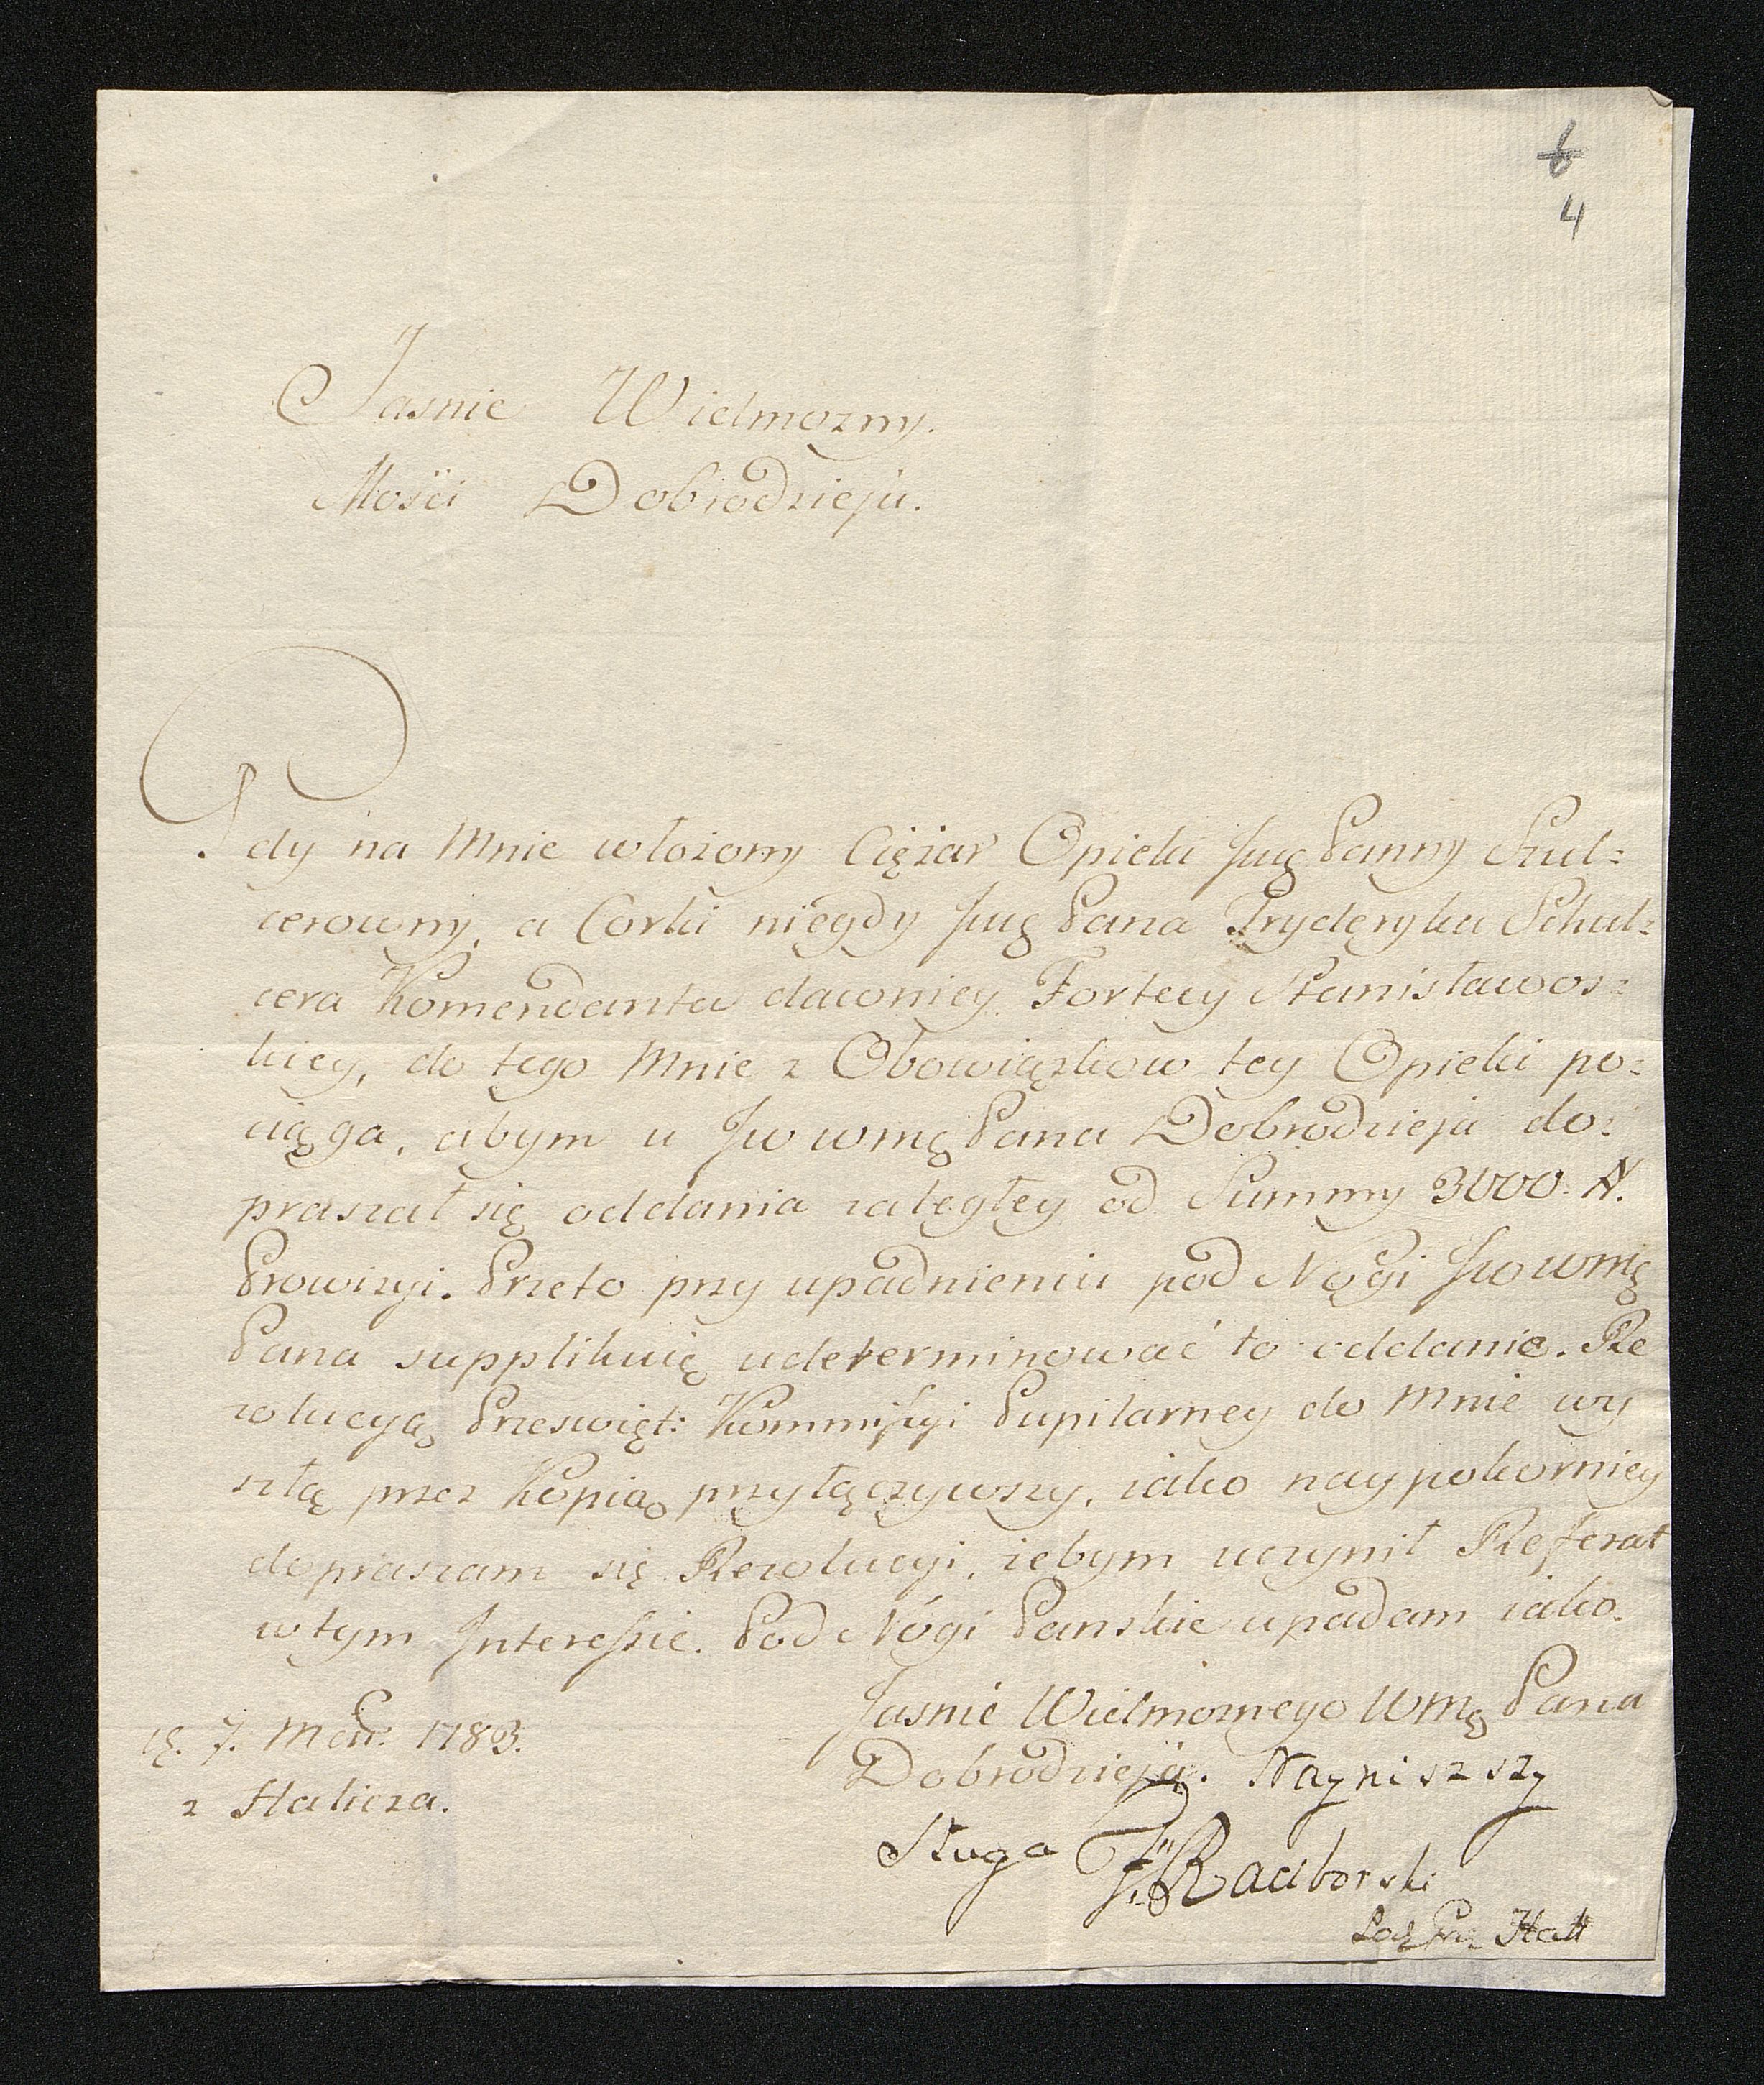 6
4
Jasnie Wielmozny.
Mości Dobrodzieju.
Gdy na Mnie włożony Ciężar Opieki Jmę Panny Szul=
cerowny, a Corki niegdy Jmę Pana Fryderyka Schul=
cera Komendanta dawniey Fortecy Stanisławows=
kiey, do tego Mnie z Obowiązkow tey Opieki po=
ciąga, abym u Jw wmę Pana Dobrodzieja do=
praszał się oddania zaległey od Summy 3000. #.
Prowizyi. Przeto przy upadnieniu pod Nogi Jw wmę
Pana supplikuię udeterminować to oddanie. Re
zolucyą Prześwięt: Kommissyi Pupilarney do Mnie wy
szłą przez Kopią przyłączywszy, iako naypokorniey
dopraszam się Rezolucyi, żebym uczynił Referat
w tym Interessie. Pod Nogi Panskie upadam iako.
Jasnie Wielmożnego Wmę Pana
Dobrodzieja. Nayniszszy
Sługa F. Raciborski
7. Mar. 1783.
z Halicza.